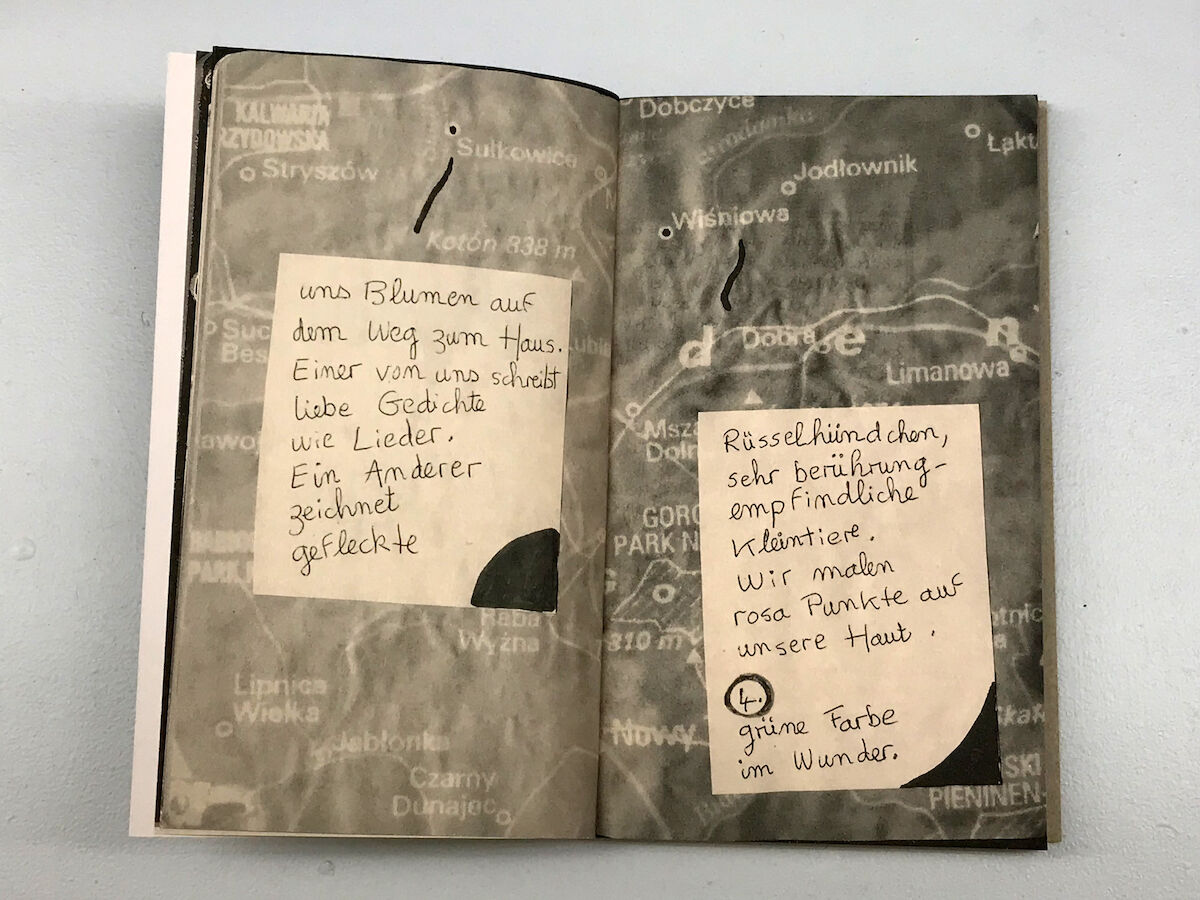 KALWARIA
ZYDOWSKA
Stryszów
Sułkowice
Kotón 838 m
uns Blumen auf
dem Weg zum Haus.
Einer von uns schreibt
liebe Gedichte
wie Lieder.
Ein Anderer
zeichnet
gefleckte
Suc
Bes
PARK
Raba
Wyżna
Lipnica
Wielka
Jabłonka
Czarny
Dunajec
Dobczyce
Łakt
Jodłownik
Wiśniowa
d e n
Dobra
Limanowa
Msza
Doln
GORC
PARK N
810 m
Rüsselhündchen,
sehr berührung-
empfindliche
Kleintiere.
Wir malen
rosa Punkte auf
unsere Haut.
4.
grüne Farbe
im Wunder.
Nowy
SKI
PIENINEN-